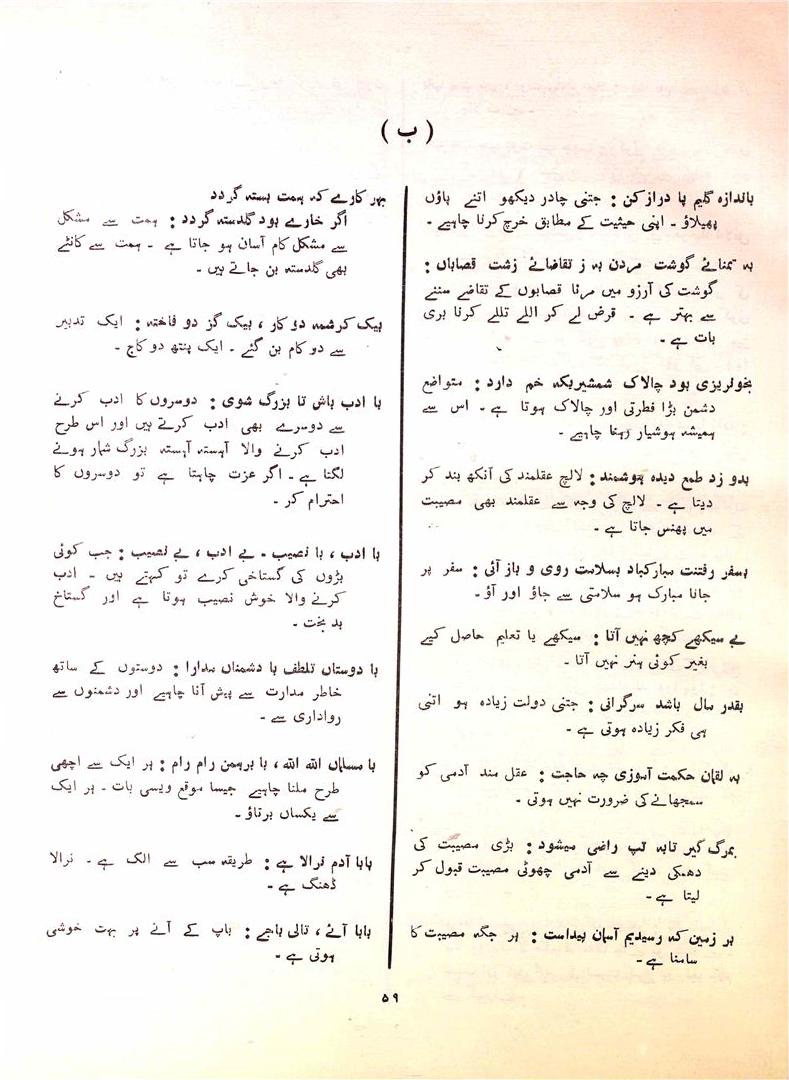 ( ب )
باندازہ گلیم پا دراز کن : جتنی چادر دیکھو اتنے پاؤں
پھیلاؤ ۔ اپنی حیثیت کے مطابق خرچ کرنا چاہیے ۔
بہ تمنائے گوشت مردن بہ ز تقاضائے زشت قصاباں :
گوشت کی آرزو میں مرنا قصابوں کے تقاضے سننے
سے بہتر ہے ۔ قرض لے کر اللے تللے کرنا بری
بات ہے ۔
بخونریزی بود چالاک شمشیریکہ خم دارد : متواضع
دشمن بڑا فطرتی اور چالاک ہوتا ہے ۔ اس سے
ہمیشہ ہوشیار رہنا چاہیے ۔
بدو زد طمع دیدہ ہوشمند : لالچ عقلمند کی آنکھ بند کر
دیتا ہے ۔ لالچ کی وجہ سے عقلمند بھی مصیبت
میں پھنس جاتا ہے ۔
بسفر رفتنت مبارکباد بسلامت روی و باز آئی : سفر پر
جانا مبارک ہو سلامتی سے جاؤ اور آؤ ۔
بے سیکھے کچھ نہیں آتا : سیکھے یا تعلیم حاصل کیے
بغیر کوئی ہنر نہیں آتا ۔
بقدر مال باشد سرگرانی : جتنی دولت زیادہ ہو اتنی
ہی فکر زیادہ ہوتی ہے ۔
بہ لقمان حکمت آموزی چہ حاجت : عقل مند آدمی کو
سمجھانے کی ضرورت نہیں ہوتی ۔
بمرگ گیر تابہ تپ راضی میشود : بڑی مصیبت کی
دھمکی دینے سے آدمی چھوٹی مصیبت قبول کر
لیتا ہے ۔
بر زمین کہ رسیدیم آسمان پیداست : ہر جگہ مصیبت کا
سامنا ہے ۔
بہر کارے کہ ہمت بستہ گردد
اگر خارے بود گلدستہ گردد : ہمت سے مشکل
سے مشکل کام آسان ہو جاتا ہے ۔ ہمت سے کانٹے
بھی گلدستہ بن جاتے ہیں ۔
بیک کرشمہ دو کار ، بیک گز دو فاختہ : ایک تدبیر
سے دو کام بن گئے ۔ ایک پنتھ دو کاج ۔
با ادب باش تا بزرگ شوی : دوسروں کا ادب کرنے
سے دوسرے بھی ادب کرتے ہیں اور اس طرح
ادب کرنے والا آہستہ آہستہ بزرگ شمار ہونے
لگتا ہے ۔ اگر عزت چاہتا ہے تو دوسروں کا
احترام کر ۔
با ادب ، با نصیب ۔ بے ادب ، بے نصیب : جب کوئی
بڑوں کی گستاخی کرے تو کہتے ہیں ۔ ادب
کرنے والا خوش نصیب ہوتا ہے اور گستاخ
بد بخت ۔
با دوستاں تلطف با دشمناں مدارا : دوستوں کے ساتھ
خاطر مدارت سے پیش آنا چاہیے اور دشمنوں سے
رواداری سے ۔
با مسلماں اللہ اللہ ، با برہمن رام رام : ہر ایک سے اچھی
طرح ملنا چاہیے جیسا موقع ویسی بات ۔ ہر ایک
سے یکساں برتاؤ ۔
بابا آدم نرالا ہے : طریقہ سب سے الگ ہے ۔ نرالا
ڈھنگ ہے ۔
بابا آئے ، تالی باجے : باپ کے آنے پر بہت خوشی
ہوتی ہے ۔
۵۹